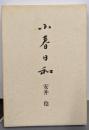 小春日和
安井